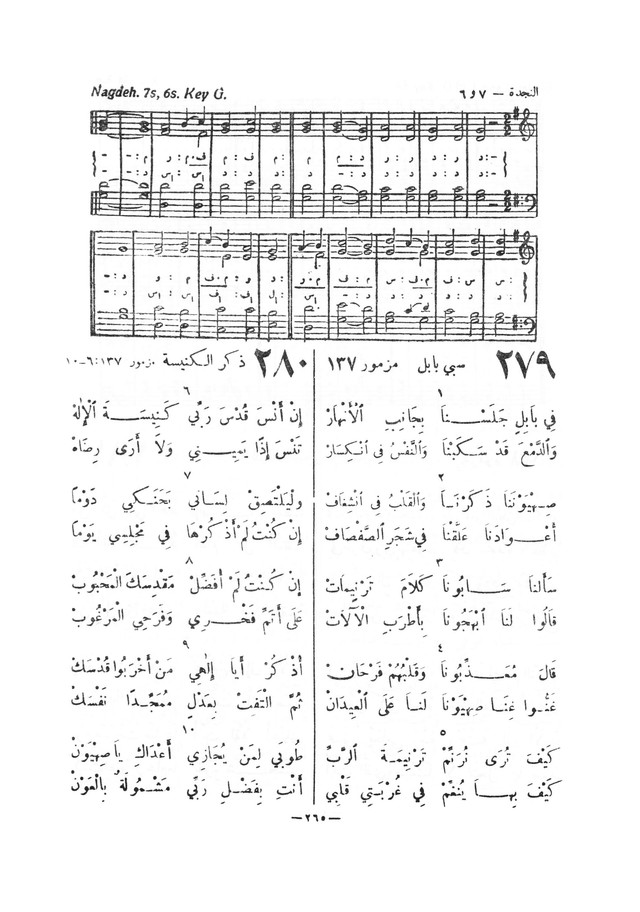 Nagdeh. 7s, 6s. Key G.
النجدة — ٧ و ٦
٢٧٩ سبي بابل مزمور ١٣٧
١
فِي بَابِلٍ جَلَسْنَا بِجَانِبِ ٱلْأَنْهَارْ
وَٱلدَّمْعَ قَدْ سَكَبْنَا وَٱلنَّفْسُ فِي ٱنْكِسَارْ
٢
صِهْيَوْنَنَا ذَكَرْنَا وَٱلقَلْبُ فِي ٱنْشِغَافْ
أَعْوَادَنَا عَلَّقْنَا فِي شَجَرِ ٱلصَّفْصَافْ
٣
سَأَلَنَا سَابُونَا كَلَامَ تَرْنِيمَاتْ
قَالُوا لَنَا ٱبْهِجُونَا بِأَطْرَبِ ٱلْآلَاتْ
٤
قَالَ مُعَذِّبُونَا وَقَلْبُهُمْ فَرْحَانْ
غَنُّوا غِنَا صِهْيَوْنَا لَنَا عَلَى ٱلْعِيدَانْ
٥
كَيْفَ تُرَى نُرَنِّمْ تَرْنِيمَةَ ٱلرَّبِّ
كَيْفَ بِهَا يُنَغِّمْ فِي غُرْبَتِي قَلْبِي
٢٨٠ ذكر الكنيسة مزمور ١٣٧:٦–١٠
٦
إِنْ أَنْسَ قُدْسَ رَبِّي كَنِيسَةَ ٱلْإِلٰهْ
تَنْسَ إِذًا يَمِينِي وَلَا أَرَى رِضَاهْ
٧
وَلْيَلْتَصِقْ لِسَانِي بِحَنَكِي دَوْمًا
إِنْ كُنْتُ لَمْ أَذْكُرْهَا فِي مَجْلِسِي يَوْمًا
٨
إِنْ كُنْتُ لَمْ أُفَضِّلْ مَقْدِسَكَ ٱلْمَحْبُوبْ
عَلَى أَتَمِّ فَخْرِي وَفَرَحِي ٱلْمَرْغُوبْ
٩
أُذْكُرْ أَيَا إِلٰهِي مَنْ أَخْرَبُوا قُدْسَكْ
ثُمَّ ٱلْتَفِتْ بِعَدْلٍ مُمَجِّدًا نَفْسَكْ
١٠
طُوبَى لِمَنْ يُجَازِي أَعْدَاكِ يَا صِهْيَوْنْ
أَنْتِ بِفَضْلِ رَبِّي مَشْمُولَةٌ بِٱلْعَوْنْ
— ٢٦٥ —